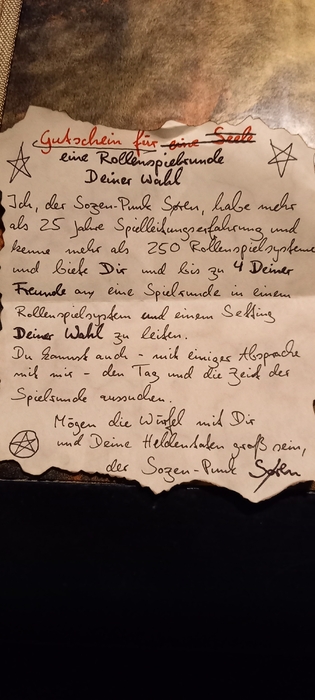 Gutschein für eine Seele
eine Rollenspielrunde
Deiner Wahl
Ich, der Sozen-Punk Søren, habe mehr
als 25 Jahre Spielleitungserfahrung und
kenne mehr als 250 Rollenspielsysteme
und biete Dir und bis zu 4 Deiner
Freunde an, eine Spielrunde in einem
Rollenspielsystem und einem Setting
Deiner Wahl zu leiten.
Du kannst auch - mit einiger Absprache
mit mir - den Tag und die Zeit der
Spielrunde aussuchen.
Mögen die Würfel mit Dir
und Deine Heldentaten groß sein,
der Sozen-Punk Søren